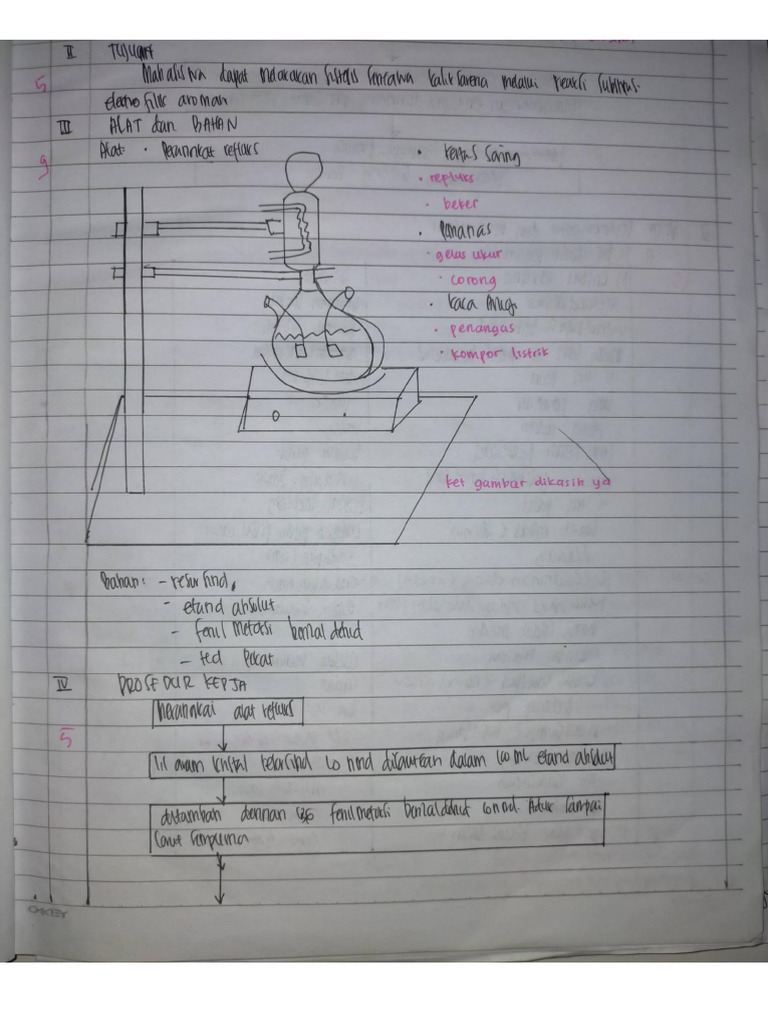 II TUJUAN
5 Mahasiswa dapat melakukan sintesis senyawa kaliksarena melalui reaksi subtitusi
electrofilik aromati
III ALAT dan BAHAN
9 Alat · Perannkat refluks
· kertas saring
· repluks
· beker
· Pananas
· gelas ukur
· corong
· kaca
· penangas
· kompor listrik
ket gambar dikasih ya
Bahan: - resorsinol,
- etanol absolut
- fenil metoksi benzaldehid
- HCl Pekat
IV PROSEDUR KERJA
5 Merannkai alat refluks
gram kristal resorsinol 10 mmol dilarutkan dalam 100 mL etanol absolut
ditambah dennan fenil metoksi benzaldehid 10 mmol. Aduk sampai
larut sempurna
OAKLEY